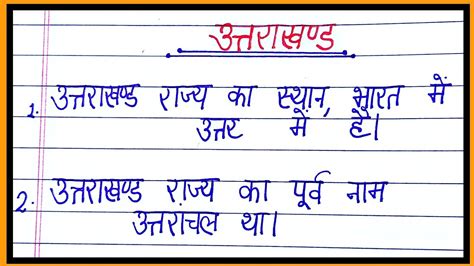 उत्तराखण्ड
1. उत्तराखण्ड राज्य का स्थान, भारत में
उत्तर में है।
2. उत्तराखण्ड राज्य का पूर्व नाम
उत्तरांचल था।